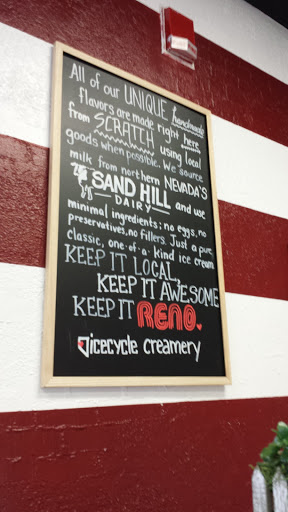 All of our UNIQUE handmade
flavors are made right here
from SCRATCH using local
goods when possible. We source
milk from northern NEVADA'S
SAND HILL
DAIRY and use
minimal ingredients; no eggs, no
preservatives, no fillers. Just a pure,
classic, one-of-a-kind ice cream
KEEP IT LOCAL,
KEEP IT AWESOME
KEEP IT RENO.
icecycle creamery